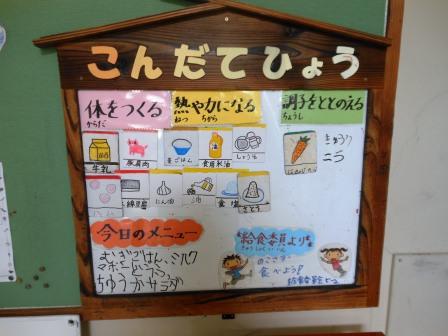 こんだてひょう
体をつくる
からだ
熱や力になる
ねつ ちから
調子をととのえる
ちょうし
牛乳
豚肩肉
麦ごはん
食用米油
しょうゆ
きゅうり
ニラ
にんじん
綿豆腐
にん油
油
食塩
さとう
今日のメニュー
むぎごはん、ミルク
マーボーどうふ、
ちゅうかサラダ
給食委員より
きゅうしょくいいん
のこさず
食べよう!